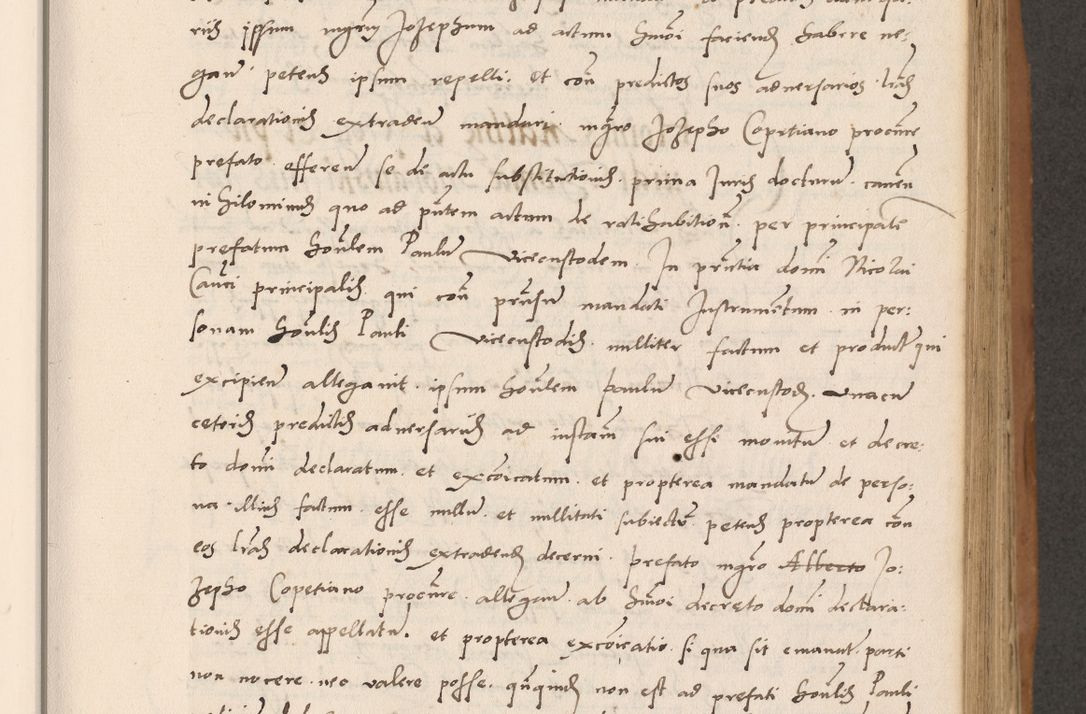 riis ipsum mgrum Jozephum ad actum hmoi faciend habere ne:
gau petens ipsum repelli et con predictos suos adversarios lras
declarationis extradeu mandari mgro Jozepho Copetiano procure
prefato offeren se de actu substitutionis prima Juris docturu caven
nihilominus quo ad pntem actum de ratihabitione per principale
prefatum honlem Paulu vicecustodem In pntia domi Nicolai
Cauci principalis qui con pnsu mandati Instrumentum in per:
sonam honlis Pauli vicecustodis nulliter factum et product qui
excipien allegavit ipsum honlem paulu vicecustode unacu
ceteris predictis adversariis ad instam sui esse monitu et decre:
to domi declaratum et excoicatum et propterea mandatu de perso:
na illius factum esse nullu et nullitati subiectu petens propterea con
eos lras declarationis extradend decerni prefato mgro Alberto Jo:
zepho Copetiano procure allegan ab hmoi decreto domi declara:
tionis esse appellatu et propterea excoicatio si qua sit emanat parti
non nocere nec valere posse qnquide non est ad prefati honlis Pauli